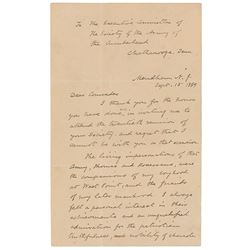 To The Executive Committee of
The Society of the Army of
the Cumberland
Chattanooga Tenn
Mendham N.J.
Sept. 15th 1889
Dear Comrades
I thank you for the honor
you have done, in inviting me to
attend the twentieth reunion of
your Society, and regret that I
cannot be with you on that occasion.
The living impersonations of that
Army, Thomas and Rosecrans, were
the companions of my boyhood
at West Point, and the friends
of my later manhood. I always
felt a personal interest in their
achievements and an unqualified
admiration for the patriotism
faithfulness, and nobility of character